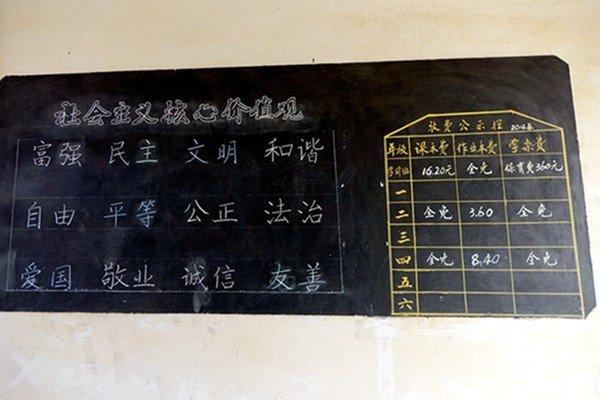 社会主义核心价值观
富强 民主 文明 和谐
自由 平等 公正 法治
爱国 敬业 诚信 友善
收费公示栏 2014春
年级 课本费 作业本费 学杂费
学前班 16.20元 全免 保育费360元
一
二 全免 3.60 全免
三
四 全免 8.40 全免
五
六